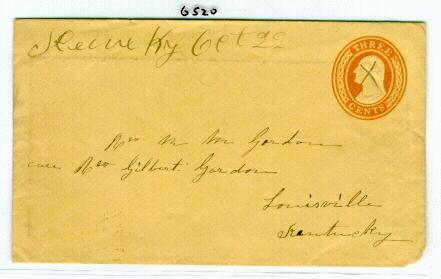 6520
Ky Oct 22
THREE
CENTS
Rev M M Gordon
care Rev Gilbert Gordon
Louisville
Kentucky